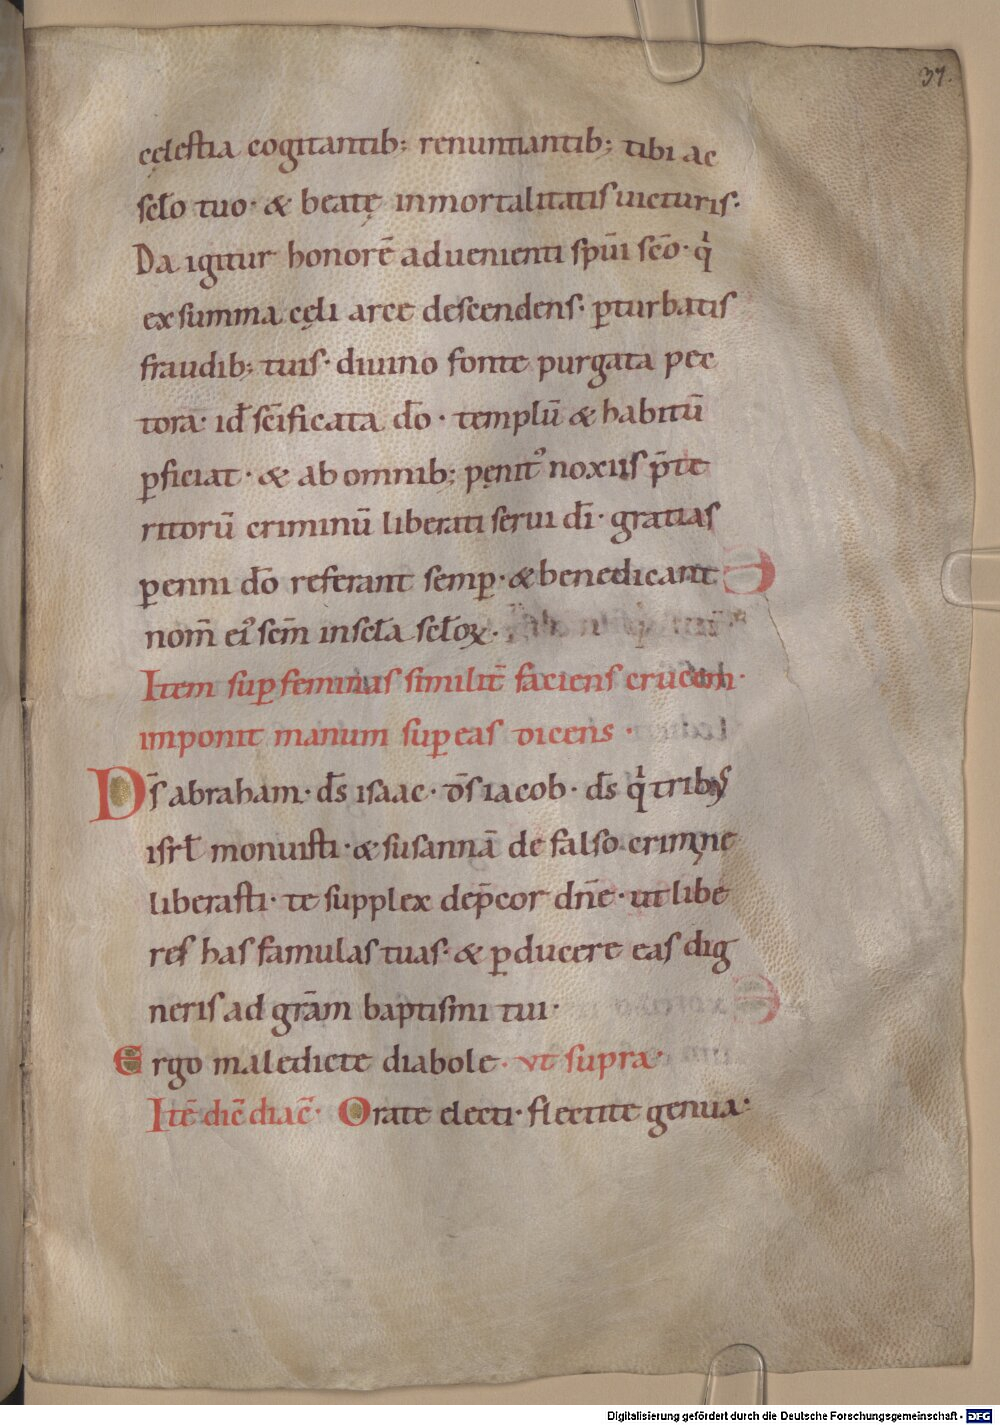 37.
cęlestia cogitantib; renuntiantib; tibi ac
scl̄o tuo· & beatę inmortalitatis uicturis·
Da igitur honorē aduenienti sp̄ui sc̄o· qͥ
ex summa cęli arce descendens· ꝑturbatis
fraudib; tuis· diuino fonte purgata pec
tora· id̄ sc̄ificata dō· templū & habitū
ꝑficiat· & ab omnib; pęnitꝰ noxiis p̄te
ritorū criminū liberati serui dī· gratias
ꝑenni dō referant semꝑ· & benedicant
nom̄ eiꝰ sc̄m in scl̄a scl̄oꝝ·
Item suꝑ feminas similit̄ faciens crucem·
imponit manum suꝑ eas dicens·
Ds̄ abraham· ds̄ isaac· ds̄ iacob· ds̄ qͥ tribꝰ
isrl̄ monuisti· & susannā de falso crimine
liberasti· te supplex dep̄cor dn̄e· ut libe
res has famulas tuas· & ꝑducere eas dig
neris ad grām baptismi tui·
Ergo maledicte diabole· vt supra·
Itē dic̄ diac̄· Orate electi· flectite genua·
Digitalisierung gefördert durch die Deutsche Forschungsgemeinschaft - DFG